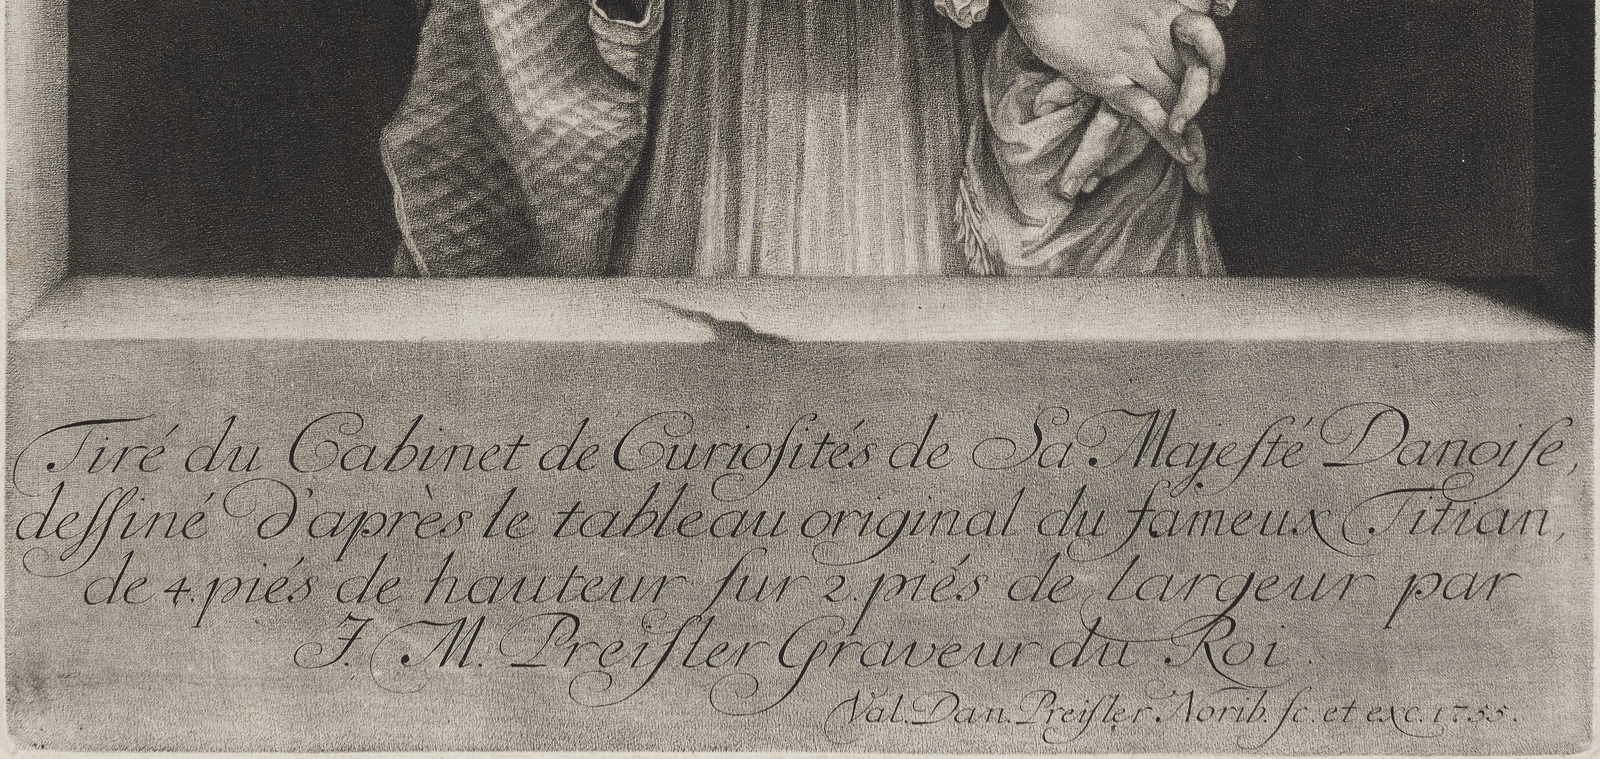 Tiré du Cabinet de Curioſités de Sa Majeſté Danoiſe,
deſſiné d'après le tableau original du fameux Titian,
de 4. piés de hauteur ſur 2. piés de largeur par
J. M. Preiſler Graveur du Roi.
Val. Dan. Preiſler Norib. ſc. et exc. 1755.